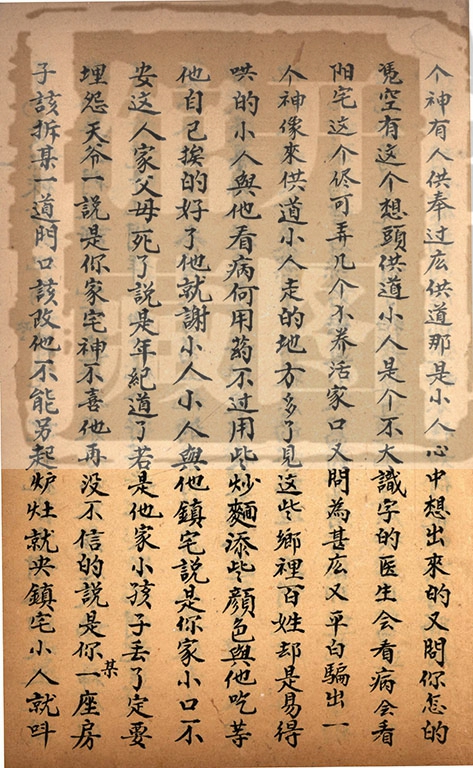 个神有人供奉过庅供道那是小人心中想出來的又問你怎的
凴空有这个想頭供道小人是个不大識字的医生会看病会看
阳宅这个侭可弄几个不养活家口又問為甚庅又平白騙出一
个神像來供道小人走的地方多了見这些鄉裡百姓却是易得
哄的小人與他看病何用葯不过用些炒麵添些顔色與他吃等
他自己挨的好了他就謝小人小人與他鎮宅說是你家小口不
安这人家父母死了說是年紀道了若是他家小孩子丢了定要
埋怨天爷一說是你家宅神不喜他再没不信的說是你某一座房
子該拆某一道門口該改他不能另起炉灶就央鎮宅小人就呌